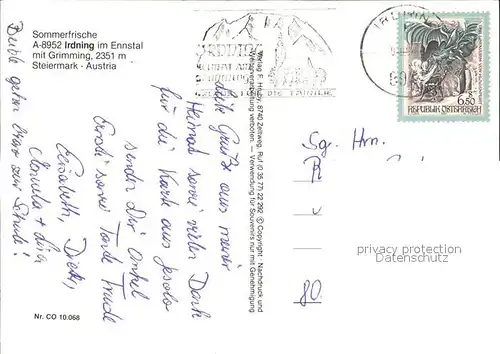 Sommerfrische
A-8952 Irdning im Ennstal
mit Grimming, 2351 m
Steiermark - Austria
IRDNING
HEIMAT AM
GRIMMING
FÜR DIE FAMILIE
REPUBLIK ÖSTERREICH
6.50
Verlag F. 8740 Zeltweg, Ruf (0 35 77) 22 292 © Copyright: Nachdruck und
verboten. — Verwendung für Souvenirs nur mit Genehmigung
Liebe Grüße aus meiner
Heimat sowie vielen Dank
für die Karte aus Jesolo
sendet Dir Onkel
Erich sowie Tante Traude
Elisabeth, Dieter,
+ Lisa
Bitte gehen
zur Schule!
Sg. Hrn.
privacy protection
OldthingService
80
Nr. CO 10.068